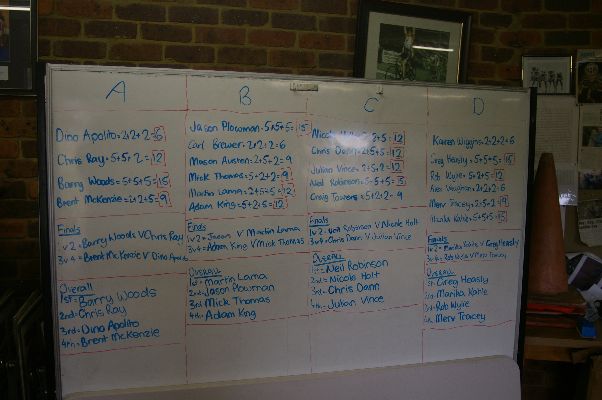 A
Dino Apolito = 2+2+2=6
Chris Ray = 5+5+2=12
Barry Woods = 5+5+5=15
Brent McKenzie = 2+2+5=9
Finals
1 v 2 = Barry Woods V Chris Ray
3 v 4 = Brent McKenzie V Dino Apolito
Overall
1st = Barry Woods
2nd = Chris Ray
3rd = Dino Apolito
4th = Brent McKenzie
B
Jason Plowman = 5+5+5=15
Carl Brewer = 2+2+2=6
Mason Austen = 2+5+2=9
Mick Thomas = 5+2+2=9
Martin Lama = 2+5+5=12
Adam King = 5+2+5=12
Finals
1 v 2 = Jason V Martin Lama
3 v 4 = Adam King V Mick Thomas
Overall
1st = Martin Lama
2nd = Jason Plowman
3rd = Mick Thomas
4th = Adam King
C
Nicole 5=12
Chris Dann = 12
Julian Vince = 12
Neil Robinson = 5+5+5=
Craig Towers = 2=9
Finals
1 v 2 = Neil Robinson V Nicole Holt
3 v 4 = Chris Dann V Julian Vince
Overall
1st = Neil Robinson
2nd = Nicole Holt
3rd = Chris Dann
4th = Julian Vince
D
Karen Wiggins = 2+2+2=6
Greg Heasly = 5+5+5=15
Rob Wylie = 12
Alex 2+2+2=6
Merv Tracey =
Marika Kahle = 5+5+5=15
Finals
1 v 2 = Marika Kahle V Greg Heasly
3 v 4 = Rob Wylie V Merv Tracey
Overall
1st = Greg Heasly
2nd = Marika Kahle
3rd = Rob Wylie
4th = Merv Tracey